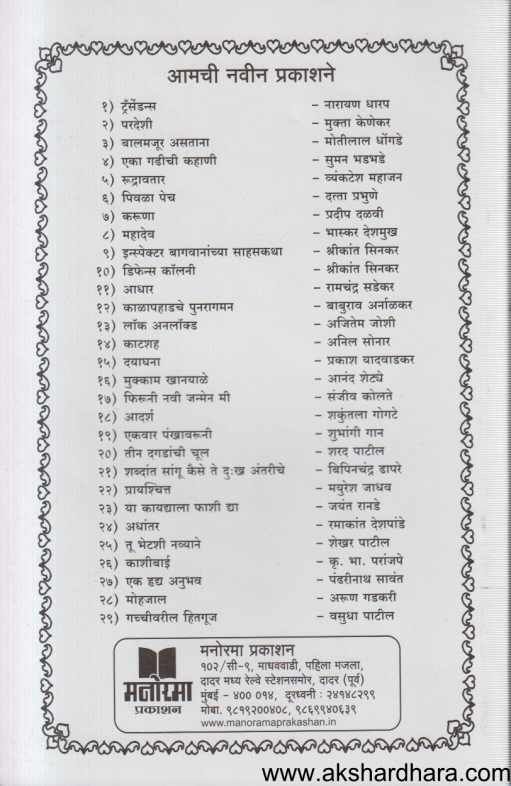 आमची नवीन प्रकाशने
१) ट्रॅंसेंडन्स – नारायण धारप
२) परदेशी – मुक्ता केणेकर
३) बालमजूर असताना – मोतीलाल धोंगडे
४) एका गडीची कहाणी – सुमन भडभडे
५) रूद्रावतार – व्यंकटेश महाजन
६) पिवळा पेच – दत्ता प्रभुणे
७) करूणा – प्रदीप दळवी
८) महादेव – भास्कर देशमुख
९) इन्स्पेक्टर बागवानांच्या साहसकथा – श्रीकांत सिनकर
१०) डिफेन्स कॉलनी – श्रीकांत सिनकर
११) आधार – रामचंद्र सडेकर
१२) काळापहाडचे पुनरागमन – बाबुराव अर्नाळकर
१३) लॉक अनलॉक्ड – अजितेम जोशी
१४) काटशह – अनिल सोनार
१५) दयाघना – प्रकाश बादवाडकर
१६) मुक्काम खानयाळे – आनंद शेट्ये
१७) फिरूनी नवी जन्मेन मी – संजीव कोलते
१८) आदर्श – शकुंतला गोगटे
१९) एकवार पंखावरूनी – शुभांगी गान
२०) तीन दगडांची चूल – शरद पाटील
२१) शब्दांत सांगू कैसे ते दुःख अंतरीचे – बिपिनचंद्र ढापरे
२२) प्रायश्चित्त – मयुरेश जाधव
२३) या कायद्याला फाशी द्या – जयंत रानडे
२४) अधांतर – रमाकांत देशपांडे
२५) तू भेटशी नव्याने – शेखर पाटील
२६) काशीबाई – कृ. भा. परांजपे
२७) एक हृद्य अनुभव – पंढरीनाथ सावंत
२८) मोहजाल – अरूण गडकरी
२९) गच्चीवरील हितगूज – वसुधा पाटील
मनोरमा प्रकाशन
मनोरमा प्रकाशन
१०२/सी-९, माधववाडी, पहिला मजला,
दादर मध्य रेल्वे स्टेशनसमोर, दादर (पूर्व)
मुंबई - ४०० ०१४, दूरध्वनी : २४१४८२९९
मोबा. ९८१९२००४०८, ९८६९९४०६३९
www.manoramaprakashan.in
www.akshardhara.com